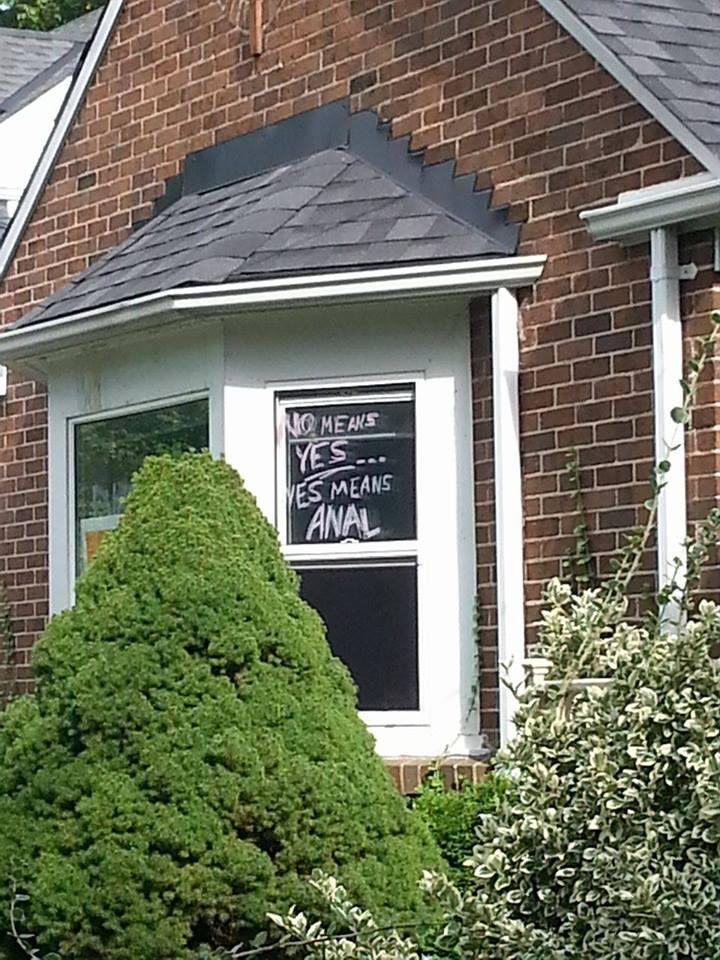 NO MEANS
YES...
YES MEANS
ANAL